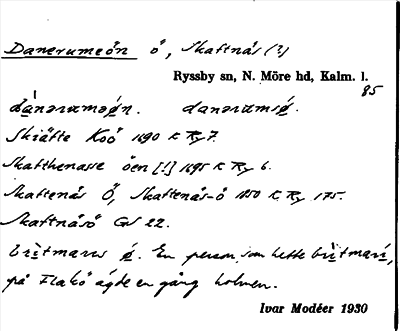 Danerumeön ö, Skaftnäs (?)
Ryssby sn, N. Möre hd, Kalm. l.
85
dánərɯməøn. danərɯmsǿ.
Skiäfte Koö 1690 K Ry 7.
Skatthenasse öen [!] 1695 K Ry 6.
Skattenäs Ö, Skattenäs-ö 1850 K. Ry 175.
Skaftnäsö GS 22.
brìtmarɯs ǿ. En person, som hette brìtmari,
på Flakö ägde en gång holmen.
Ivar Modéer 1930